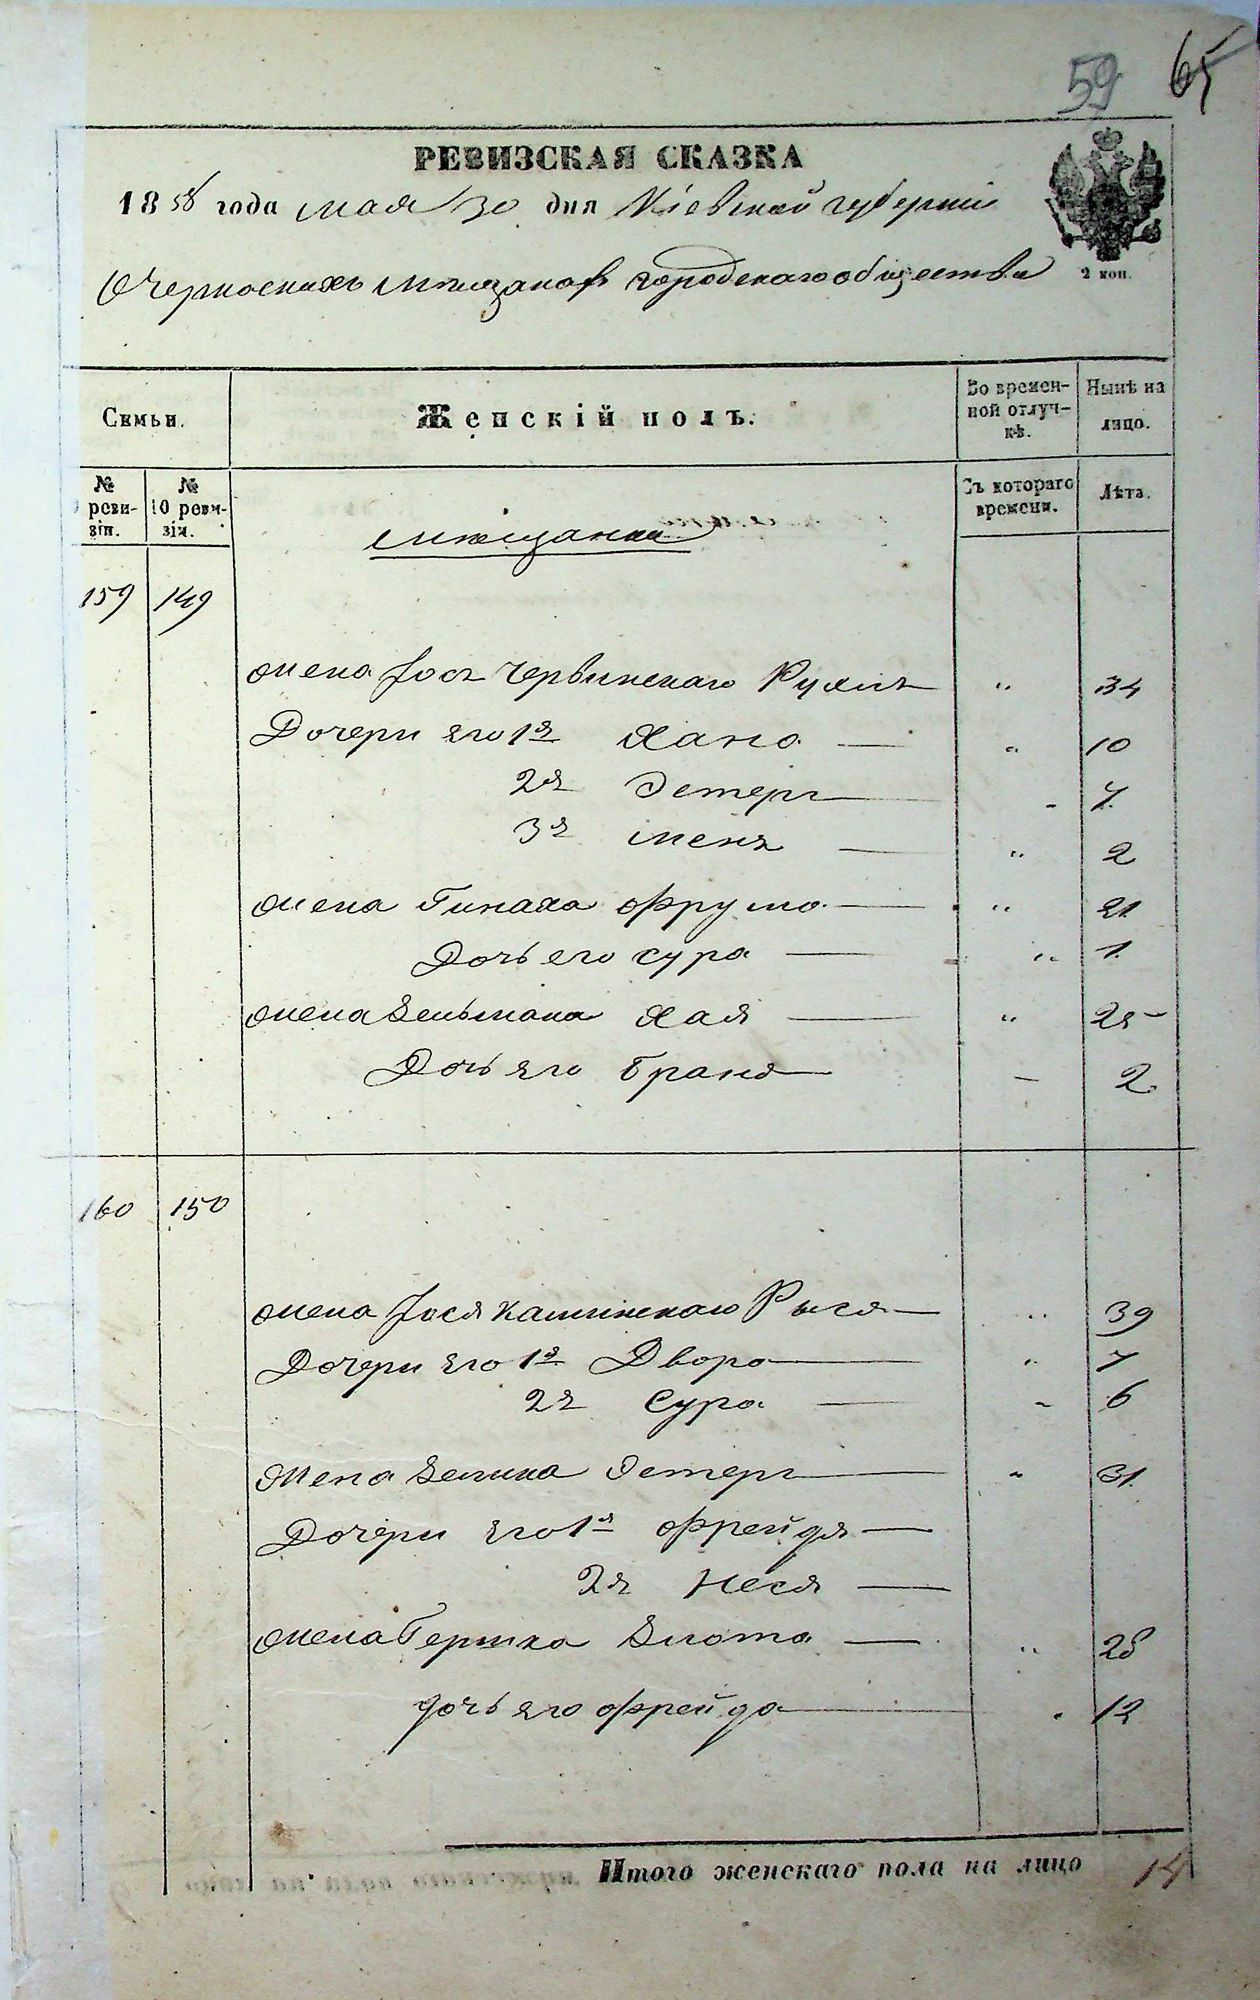 59 65
РЕВИЗСКАЯ СКАЗКА
1858 года мая 30 дня Кіевской губерніи
О Черкоскихъ мещанахъ городскаго общества
2 коп.
Семьи. Женскій полъ. Во времен-ной отлуч-кѣ. Нынѣ на лицо.
№ реви-зіи. № 10 реви-зіи. Съ котораго времени. Лѣта.
мещанки
159 149
жена Іося Червинскаго Рухля " 34
Дочери его 1я Хана — " 10
2я Эстеръ - 7
3я Меня — " 2
жена Пинхаса Фрума — " 21
Дочь его Сура — " 1
жена Зельмана Хая — " 25
Дочь его Брана — 2
160 150
жена Іося Калинскаго Рыся — " 39
Дочери его 1я Двора — " 7
2я Сура — - 6
Жена Зелика Эстеръ " 31
Дочери его 1я Фрейдя —
2я Неся —
жена Гершка Злота — " 28
дочь его Фрейда — 12
Итого женскаго пола на лицо 14